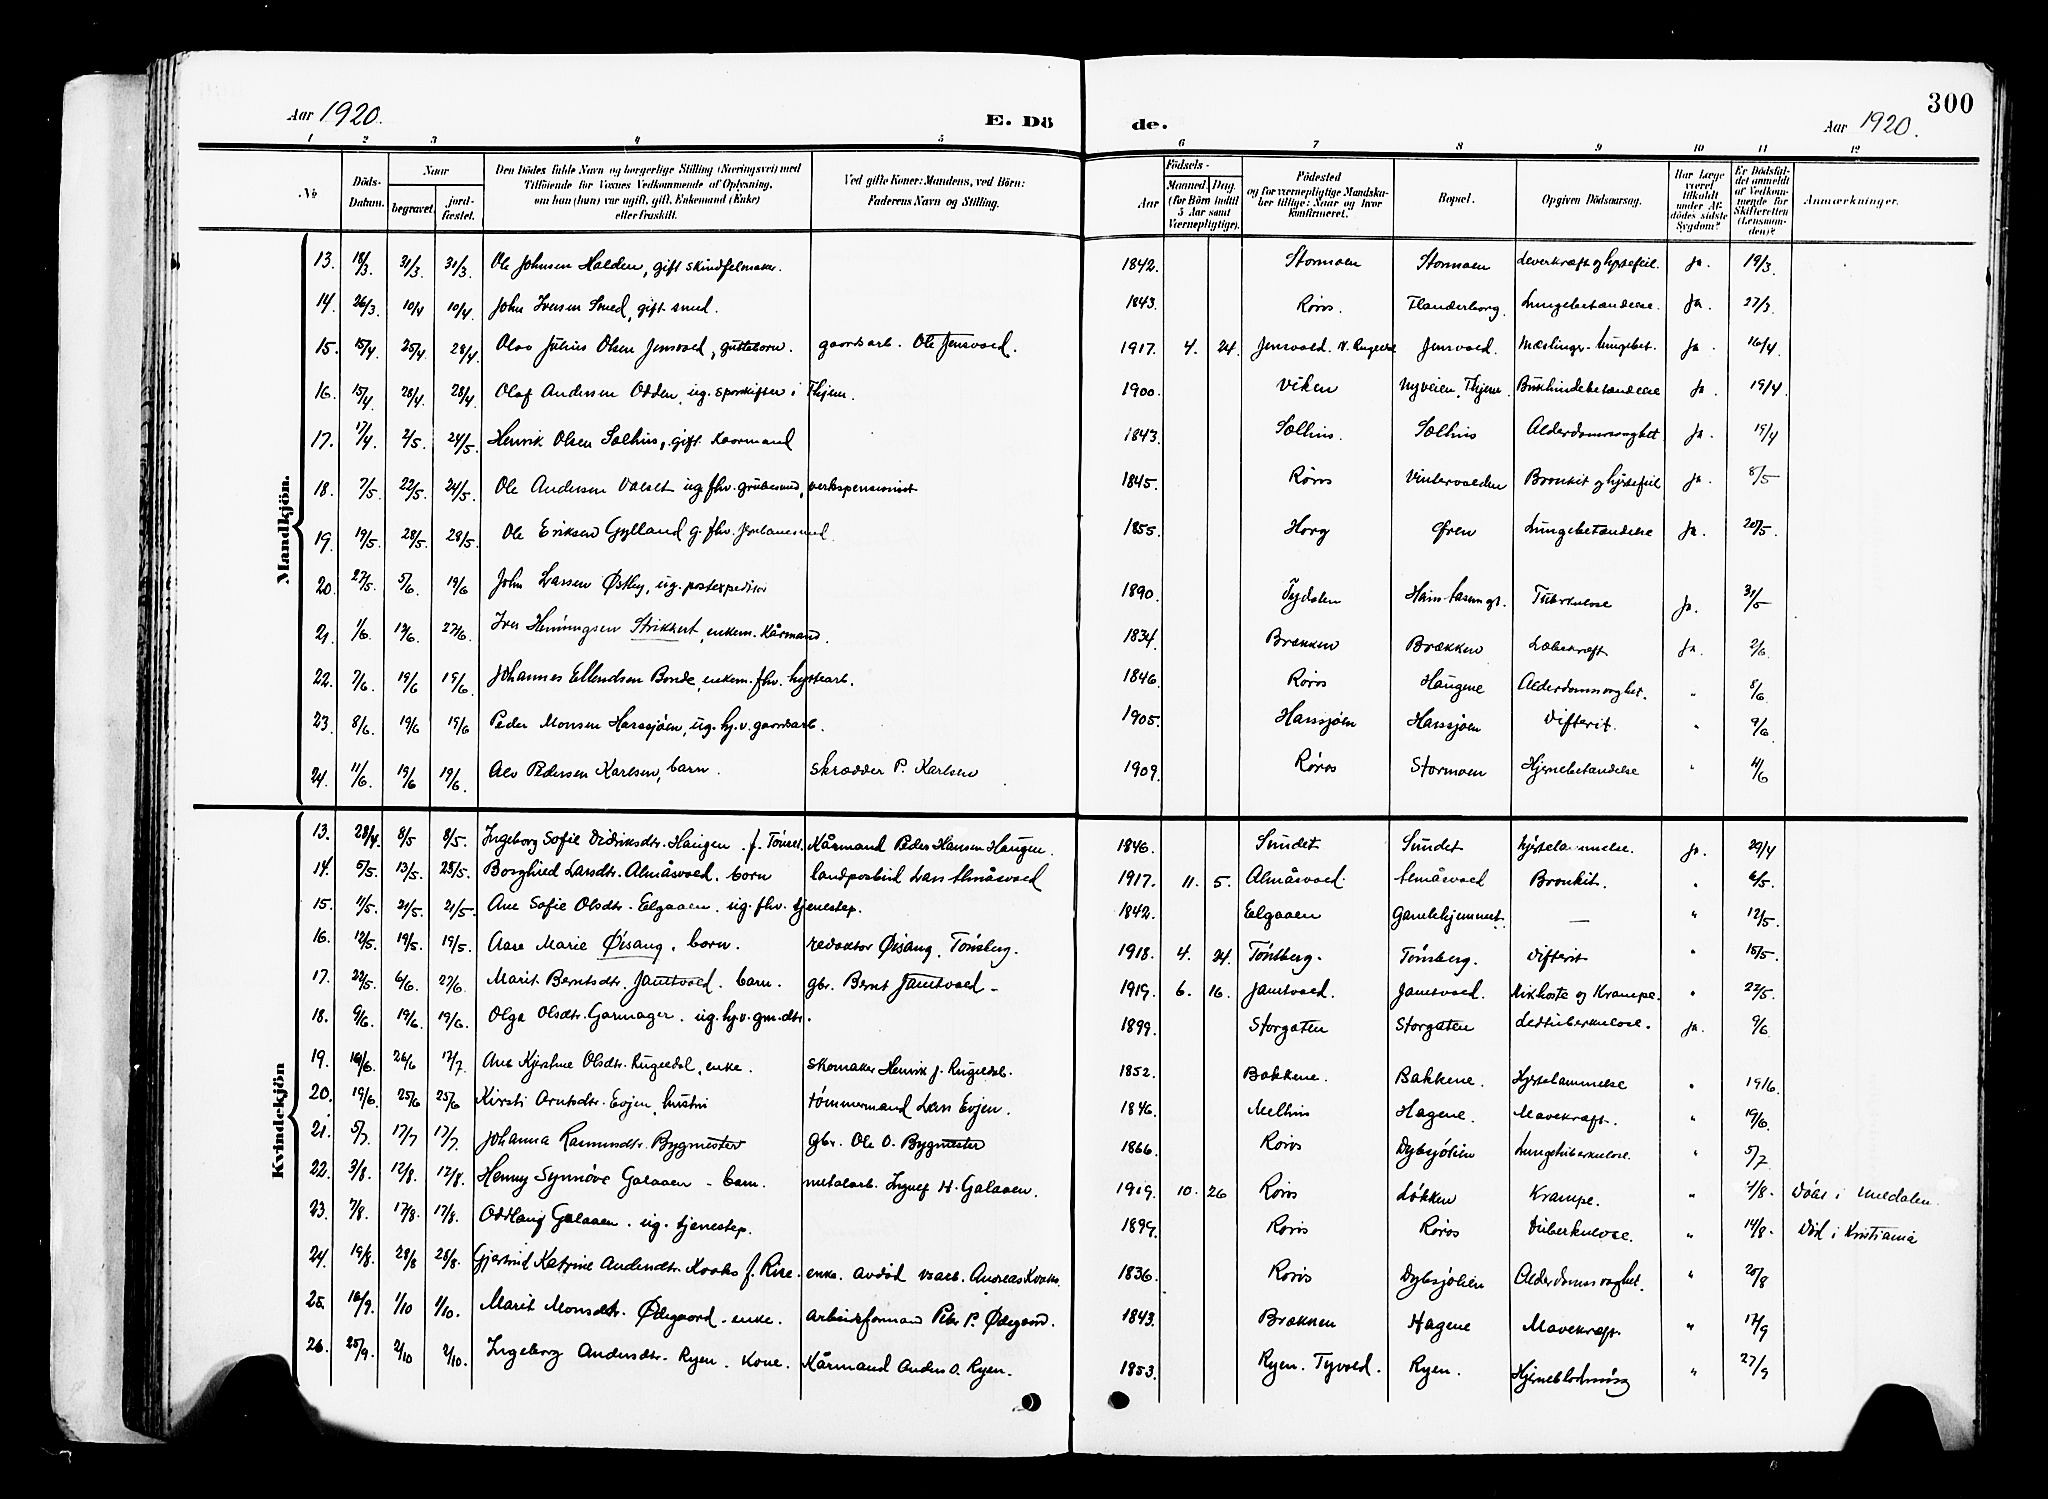 300
Aar 1920.
E. Dö de.
Aar 1920.
1 2 3 4 5 6 7 8 9 10 11 12
№
Döds-Datum.
Naar
begravet.
jordfæstet.
Den Dödes fulde Navn og borgerlige Stilling (Næringsvei) med Tilföiende for Voxnes Vedkommende af Oplysning, om han (hun) var ugift, gift, Enkemand (Enke) eller fraskilt.
Ved gifte Koner: Mandens, ved Börn: Faderens Navn og Stilling.
Födsels-
Aar
Maaned. Dag.
(for Börn indtil 5 Aar samt Værnepligtige).
Födested og for værnepligtige Mandskaber tillige: Naar og hvor konfirmeret.
Bopæl.
Opgiven Dödsaarsag.
Har Læge været tilkaldt under Afdødes sidste Sygdom?
Er Dödsfaldet anmeldt af Vedkommende for Skifteretten (Lensmanden)?
Anmærkninger.
Mandkjön.
13. 18/3 31/3 31/3. Ole Johnsen Halden, gift skindfelmaker. 1842. Stormoen Stormoen Leverkræft og hjertefeil. Ja. 19/3.
14. 26/3. 10/4 10/4. John Iversen Smed, gift smed. 1843. Røros. Flanderborg. Lungebetændelse. Ja. 27/3.
15. 15/4. 25/4. 28/4. Olav Julius Olsen Jensvold, guttebarn. gaardsarb. Ole Jensvold. 1917. 4. 24. Jensvold. Jensvold. Mæslinger-Lungebet. Ja. 16/4
16. 15/4. 28/4. 28/4. Olaf Andersen Odden, ug. sporskifter i Thjem. 1900. Viken Nyveien, Thjem Bukhindebetændelse Ja. 19/4
17. 17/4. 2/5. 24/5. Henrik Olsen Solhus, gift Kaarmand 1843. Solhus. Solhus Alderdomssvaghet Ja. 19/4
18. 7/5. 22/5. 24/5. Ole Andersen Valset ug. fhv. grubesmed, verkspensionist 1845. Røros Vintervolden Bronkit og hjertefeil Ja. 8/5
19. 19/5. 28/5. 28/5. Ole Eriksen Gylland g. fhv. jernbanesmed. 1855. Horg Øren Lungebetændelse Ja. 20/5.
20. 27/5. 5/6. 19/6 John Larsen Østby, ug. postexpeditør 1890. Tydalen Tuberkulose Ja. 31/5
21. 1/6. 19/6. 27/6. Iver Henningsen Strikkert, enkem. Kårmand. 1834. Brækken Brækken Læbekræft Ja. 2/6.
22. 7/6. 19/6 19/6. Johannes Ellendsen Bonde, enkem. fhv. hyttearb. 1846. Røros Haugene Alderdomssvaghet. " 8/6.
23. 8/6. 19/6 19/6 Peder Monsen Harssjøen, ug. hj.v. gaardsarb. 1905. Harssjøen Harssjøen Difterit. " 9/6.
24. 11/6. 19/6 19/6. Alv Pedersen Karlsen, barn. Skrædder P. Karlsen 1909. Røros Stormoen Hjernebetændelse " 11/6
Kvindekjön
13. 28/4. 8/5 8/5. Ingeborg Sofie Didriksdtr. Haugen f. Tønset. Kårmand Peder Hansen Haugen. 1846. Sundet Sundet hjertelammelse. Ja. 29/4
14. 5/5. 13/5. 25/5. Borghild Larsdtr. Almåsvold. barn landpostbud Lars Almåsvold 1917. 11. 5. Almåsvold. Almåsvold Bronkit. " 6/5.
15. 11/5. 21/5. 21/5. Ane Sofie Olsdtr. Elgaaen. ug. fhv. tjenestep. 1842. Elgaaen Gamlehjemmet. — " 12/5.
16. 12/5. 19/5. 19/5. Aase Marie Øisang. barn. redaktør Øisang. Tønsberg. 1918. 4. 24. Tønsberg. Tønsberg. Difterit " 15/5.
17. 22/5. 6/6. 27/6. Marit Berntsdtr. Jamtvold. barn. gbr. Bernt Jamtvold. 1919. 6. 16. Jamtvold. Jamtvold. Kikhoste og Krampe. " 22/5.
18. 9/6. 19/6. 19/6. Olga Olsdtr. Garmager. ug. hj.v. gm.dtr. 1899. Storgaten Storgaten Ledtuberkulose. Ja. 9/6
19. 16/6. 26/6 17/7. Ane Kjerstine Olsdtr. Rugeldal, enke. Skomaker Henrik J. Rugeldal. 1852. Bakkene. Bakkene. Hjertelammelse " 19/6.
20. 19/6. 25/6 25/6 Kirsti Arntsdtr. Evjen, hustru tømmermand Lars Evjen. 1846. Melhus Hagene. Mavekræft. " 19/6.
21. 5/7. 17/7 17/7. Johanna Rasmusdtr. Bygmester gbr. Ole O. Bygmester 1866. Røros Dybsjølien Lungetuberkulose. " 5/7
22. 3/8. 12/8. 12/8. Henny Synnøve Galaaen - barn. metalarb. Ingulf H. Galaaen. 1919. 10. 26 Røros Løkken Krampe. " 4/8. Død i Meldalen.
23. 7/8. 17/8. 17/8. Oddlaug Galaaen. ug. tjenestep. 1899. Røros Røros Tuberkulose. " 14/8. Död i Kristiania
24. 19/8. 28/8 28/8. Gjertrud Katrine Andersdtr. Kroks f. Rise. enke. avdöd vsarb. Andreas Kroks. 1836. Røros Dybsjølien Alderdomssvaghet. " 20/8
25. 16/9. 1/10 1/10. Marit Monsdtr. Ødegaard. enke. arbeidsformand Peter P. Ødegaard. 1843. Brækken Hagene Mavekræft. " 17/9
26. 25/9. 2/10 2/10. Ingeborg Andersdtr. Ryen. Kone. Kårmand Anders O. Ryen. 1853. Ryen. Tyvold. Ryen. Hjerneblödning " 27/9